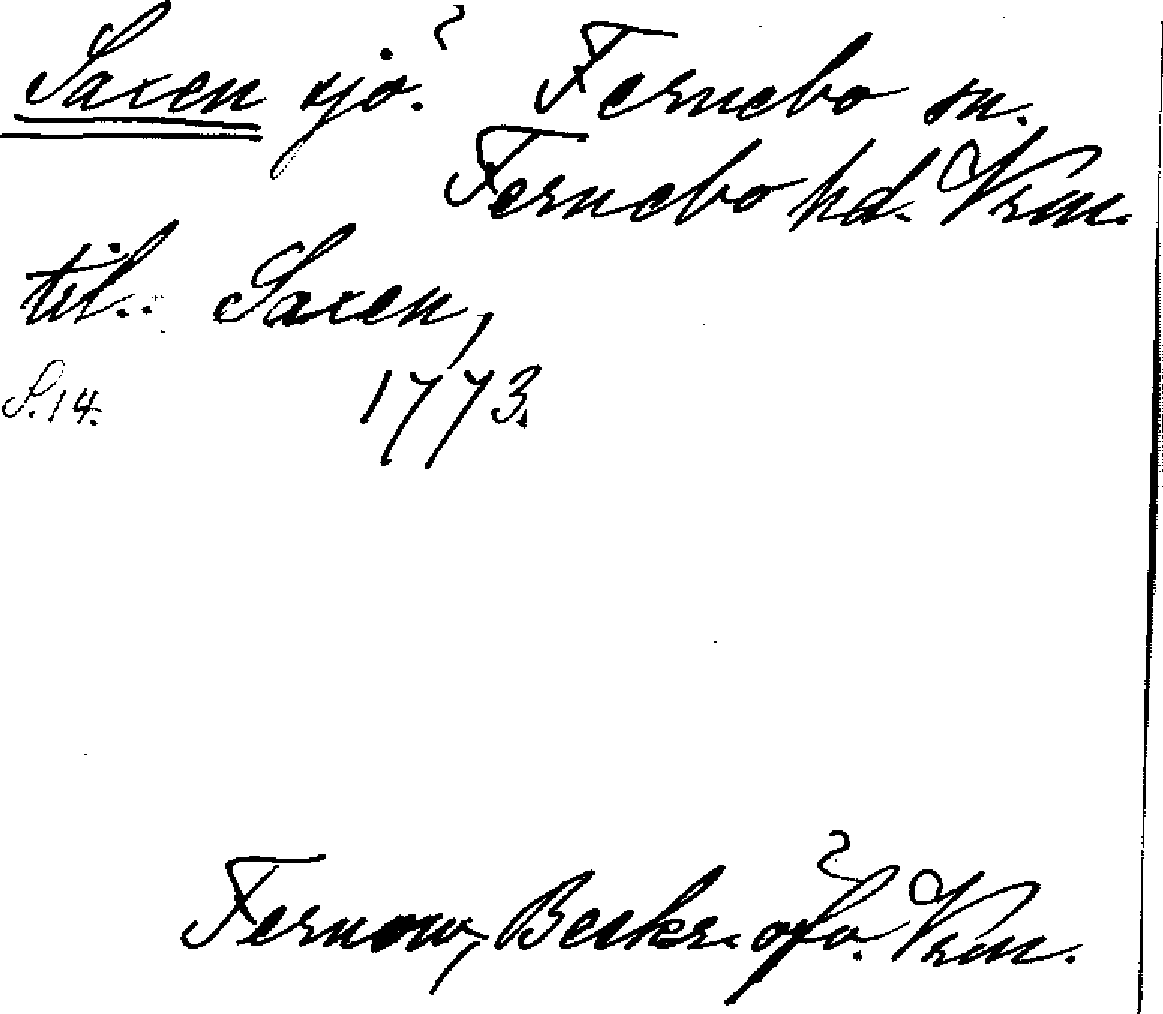 Saxen sjö. Fernebo sn.
Fernebo hd. Vrml.
til.: Saxen,
S. 14. 1773.
Fernow, Beskr. öfv. Vrml.